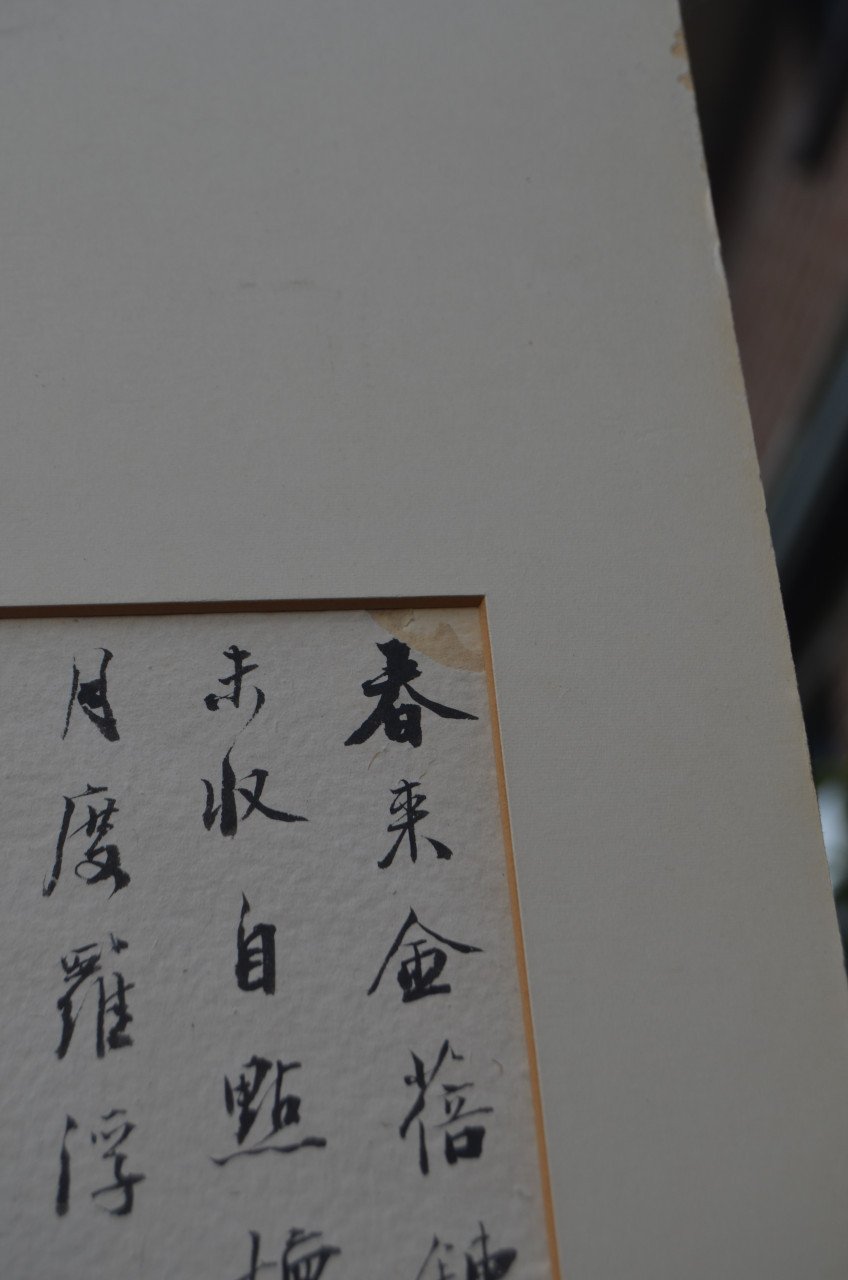 春来金蓓
未收自點
月度羅浮